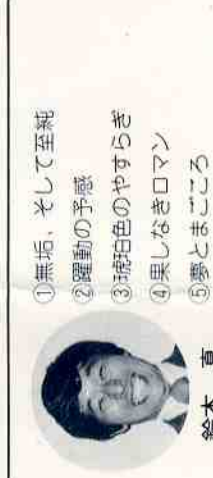 ①無垢、そして至純
②躍動の予感
③琥珀色のやすらぎ
④果しなきロマン
⑤夢とまごころ
鈴木